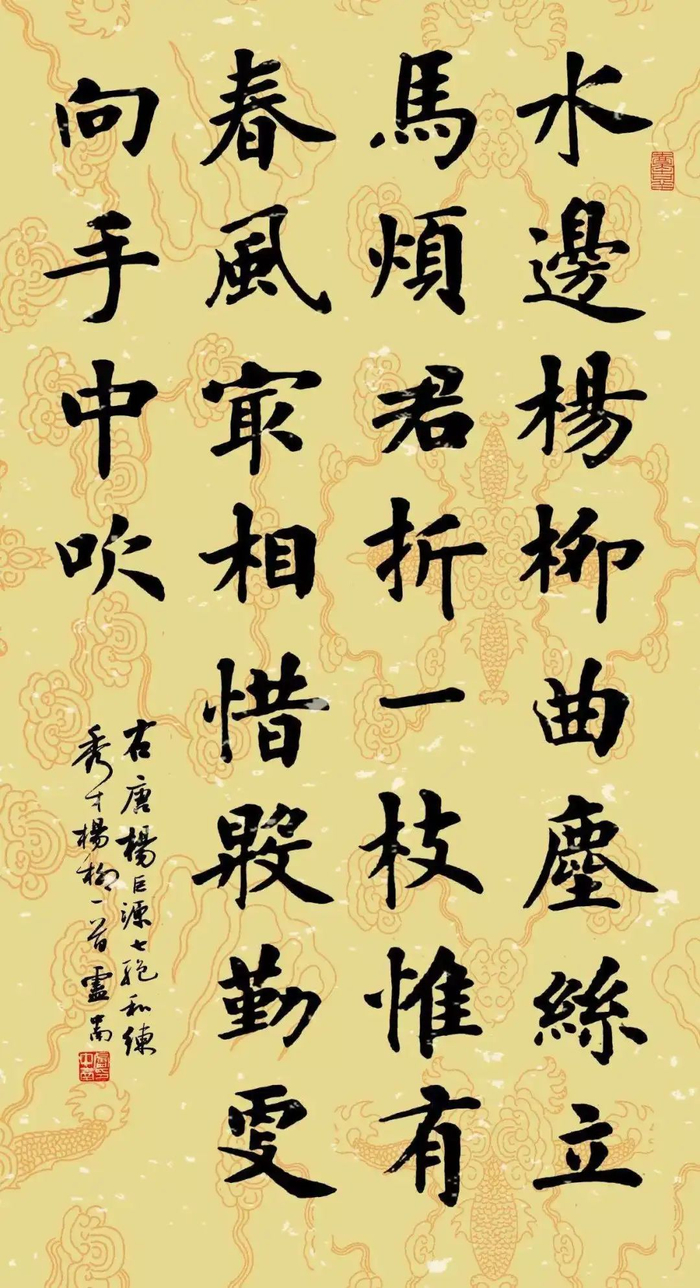 水邊楊柳曲塵絲立
馬煩君折一枝惟有
春風㝡相惜殷勤更
向手中吹
右唐楊巨源七絕和練
秀才楊柳一首盧中南